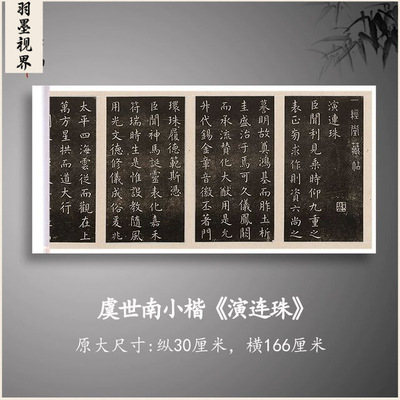 羽墨视界
一經堂藏帖
演連珠
臣聞利見秉時仰九重之
表正匈求作則資六尚之
墓明故真鴻基而胙土析
圭盛治于焉可久儀鳳闕
而承流贊化大猷用是允
升代錫金章音徽丕著門
環珠履德範斯憑
臣聞神馬誕雲表化嘉禾
符瑞時生是惟設教隨風
用光文德修儀成俗爰兆
太平四海雲從而觀在上
萬方星拱而道大行
虞世南小楷《演连珠》
原大尺寸:纵30厘米，横166厘米